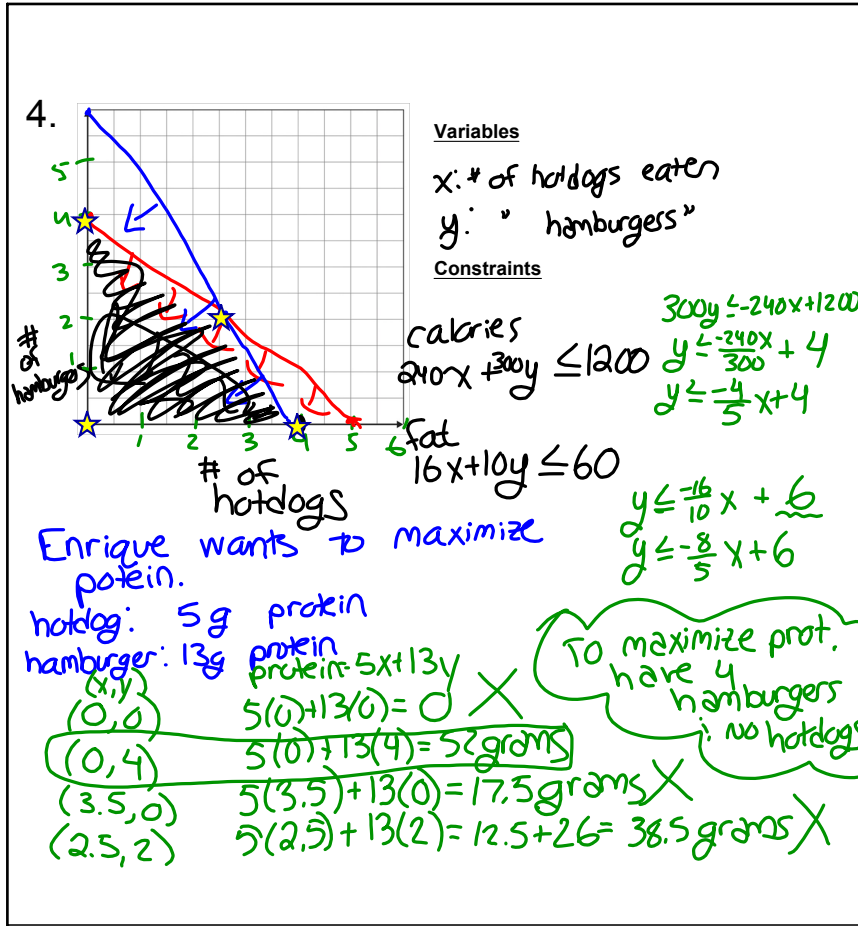 4.
5
4
3
2
1
# of hamburgers
1 2 3 4 5 6
# of hotdogs
Variables
x: # of hotdogs eaten
y: " hamburgers "
Constraints
calories
240x + 300y ≤ 1200
fat
16x+10y ≤ 60
300y ≤ -240x+1200
y ≤ -240x/300 + 4
y ≤ -4/5 x+4
y ≤ -16/10 x + 6
y ≤ -8/5 x + 6
Enrique wants to maximize
potein.
hotdog: 5g protein
hamburger: 13g protein
(x,y) protein=5x+13y
(0,0) 5(0)+13(0)= 0 X
(0,4) 5(0)+13(4)=52grams
(3.5,0) 5(3.5)+13(0)=17.5grams X
(2.5,2) 5(2.5)+13(2)=12.5+26= 38.5 grams X
To maximize prot.
have 4
hamburgers
: no hotdogs